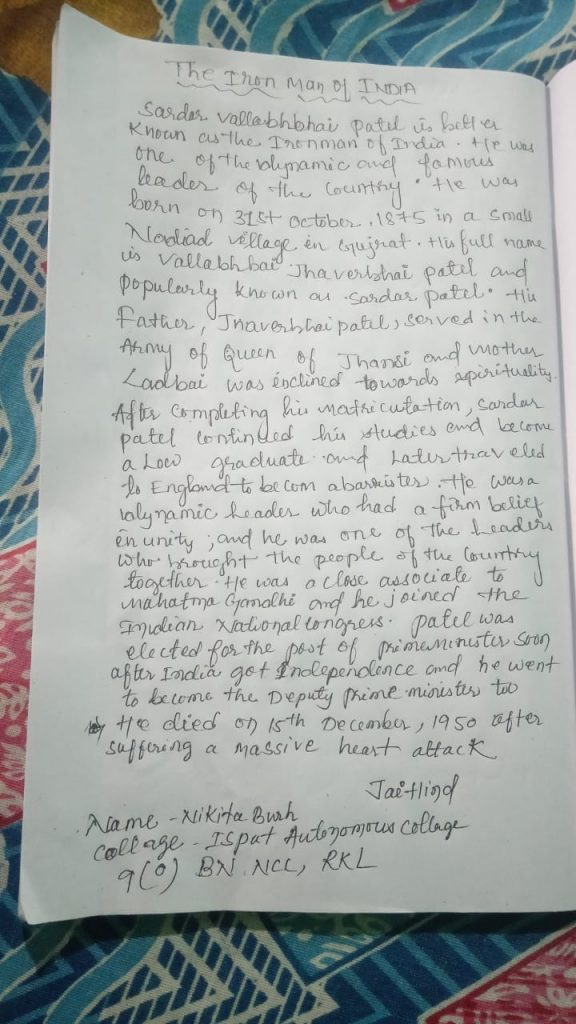 The Iron Man of INDIA
Sardar vallabhbhai patel is better
Known as the Ironman of India. He was
one of the dynamic and famous
leader of the Country. He was
born on 31st October, 1875 in a small
Nadiad village in Gujrat. His full name
is Vallabhbai Jhaverbhai patel and
popularly known as Sardar patel. His
Father, Jhaverbhai patel, served in the
Army of Queen of Jhansi and mother
Ladbai was inclined towards spirituality.
After Completing his matriculation, Sardar
patel continued his studies and become
a Low graduate and Later traveled
to England to becom a barrister. He was a
dynamic Leader who had a firm belief
in unity, and he was one of the Leaders
who brought the people of the Country
together. He was a close associate to
Mahatma Gandhi and he joined the
Indian National Congress. patel was
elected for the post of primeminister soon
after India got Independence and he went
to become the Deputy prime minister too
He died on 15th December, 1950 after
suffering a massive heart attack
Jai Hind
Name - Nikita
Collage - Ispat Autonomous Collage
9(O) BN NCC, RKL